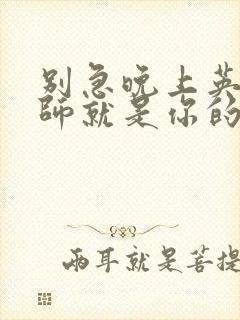 别急晚上英
师就是你的
两耳就是菩提